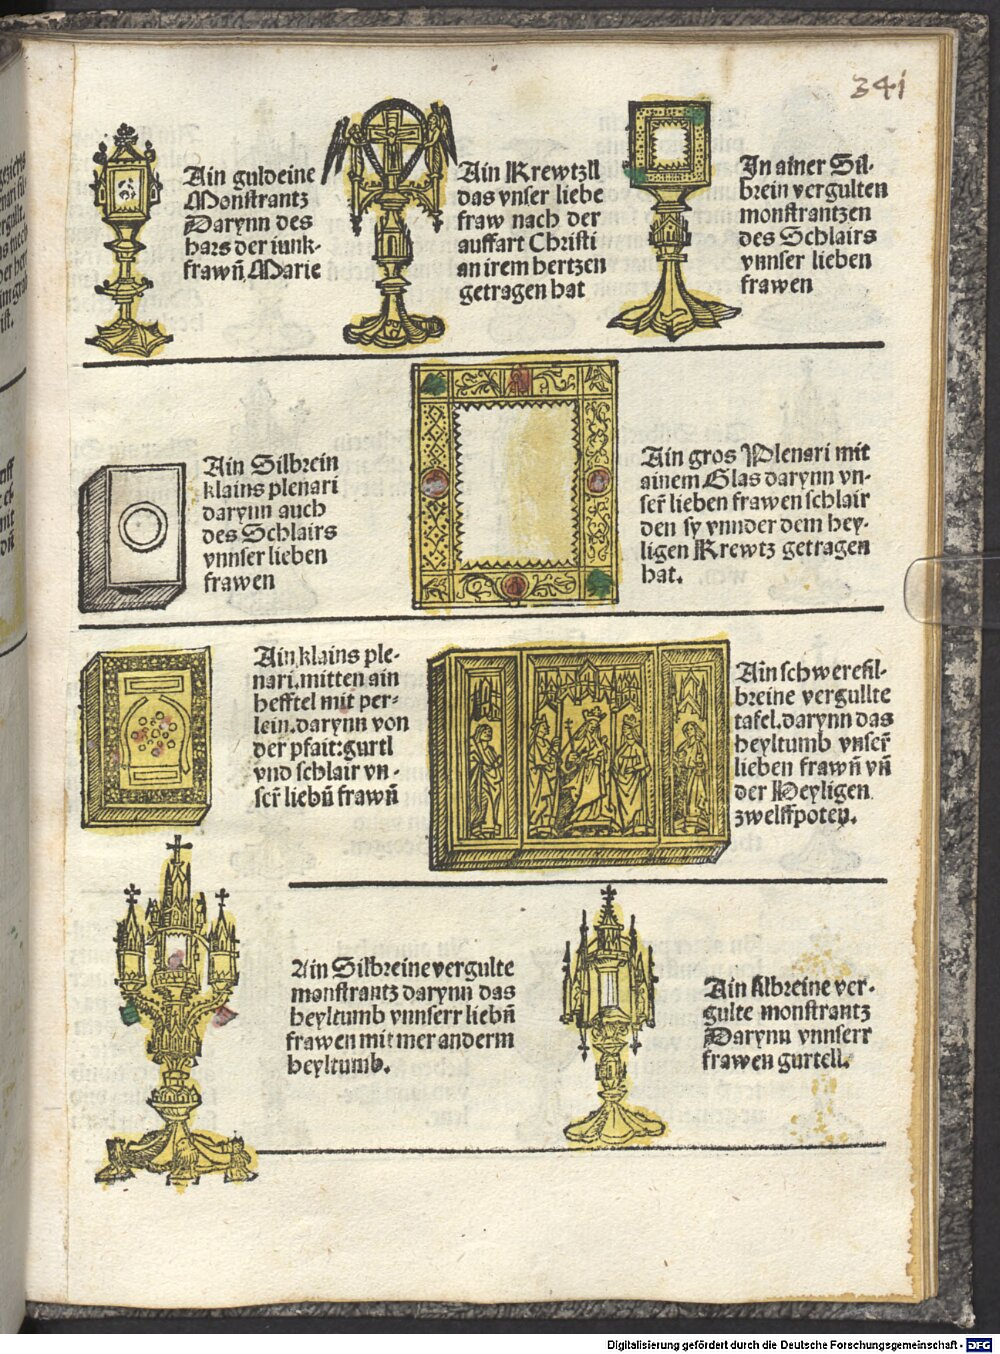 341
Ain guldeine
Monstrantz
Darynn des
hars der iunk-
frawn̄ Marie
Ain Krewtzll
das vnser liebe
fraw nach der
auffart Christi
an irem hertzen
getragen hat
In ainer Sil-
brein vergulten
monstrantzen
des Schlairs
vnnser lieben
frawen
Ain Silbrein
klains plenari
darynn auch
des Schlairs
vnnser lieben
frawen
Ain gros Plenari mit
ainem Glas darynn vn-
ser̄ lieben frawen schlair
den sy vnnder dem hey-
ligen Krewtz getragen
hat.
Ain klains ple-
nari. mitten ain
hefftel mit per-
lein. darynn von
der pfait: gurtl
vnd schlair vn-
ser̄ liebn̄ frawn̄
Ain schwere sil-
breine vergullte
tafel. darynn das
heyltumb vnser̄
lieben frawn̄ vn̄
der Heyligen
zwelffpoten.
Ain Silbreine vergulte
monstrantz darynn das
heyltumb vnnserr liebn̄
frawen mit mer anderm
heyltumb.
Ain silbreine ver-
gulte monstrantz
Darynn vnnserr
frawen gurtell.
Digitalisierung gefördert durch die Deutsche Forschungsgemeinschaft - DFG